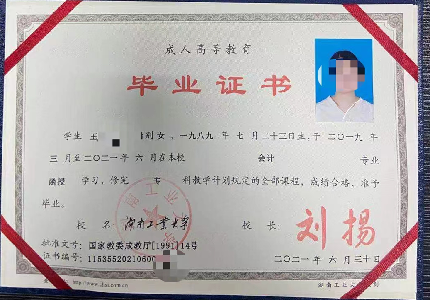 成人高等教育
毕业证书
学生 王 性别 女 ,一九八九年 七 月 二十三日生,于二〇一九 年
三 月至二〇二一年 六 月在本校 会计 专业
函授 学习,修完 专 科教学计划规定的全部课程,成绩合格,准予
毕业。
校 名 湖南工业大学 校 长 刘扬
批准文号: 国家教委成教厅[1991]14号
证书编号: 1153552021060
二〇二一年 六 月三十日